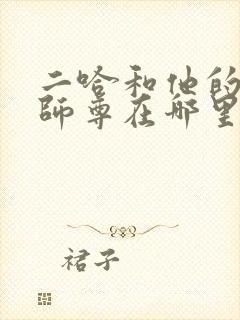 二哈和他的
师尊在哪里
裙子